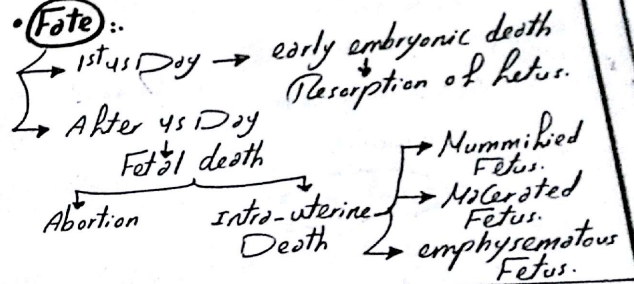 • Fate :.
1st 45 Day → early embryonic death
↓
Resorption of fetus.
After 45 Day
↓
Fetal death
Abortion
Intra-uterine Death
→ Mummified Fetus.
→ Macerated Fetus.
→ emphysematous Fetus.